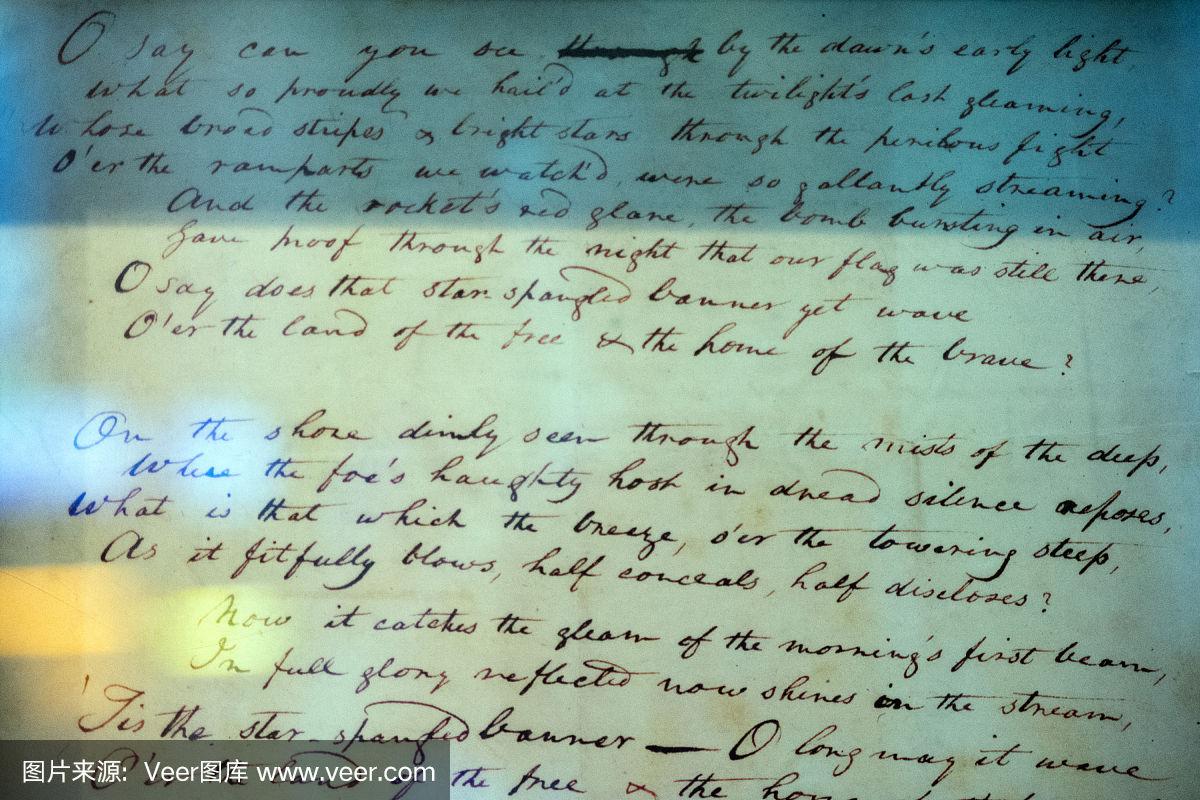 O say can you see ~~through~~ by the dawn's early light,
What so proudly we hail'd at the twilight's last gleaming,
Whose broad stripes & bright stars through the perilous fight
O'er the ramparts we watch'd, were so gallantly streaming?
And the rocket's red glare, the bomb bursting in air,
Gave proof through the night that our flag was still there,
O say does that star-spangled banner yet wave
O'er the land of the free & the home of the brave?
On the shore dimly seen through the mists of the deep,
Where the foe's haughty host in dread silence reposes,
What is that which the breeze, o'er the towering steep,
As it fitfully blows, half conceals, half discloses?
Now it catches the gleam of the morning's first beam,
In full glory reflected now shines in the stream,
'Tis the star-spangled banner — O long may it wave
O'er the land of the free & the
图片来源：Veer图库 www.veer.com